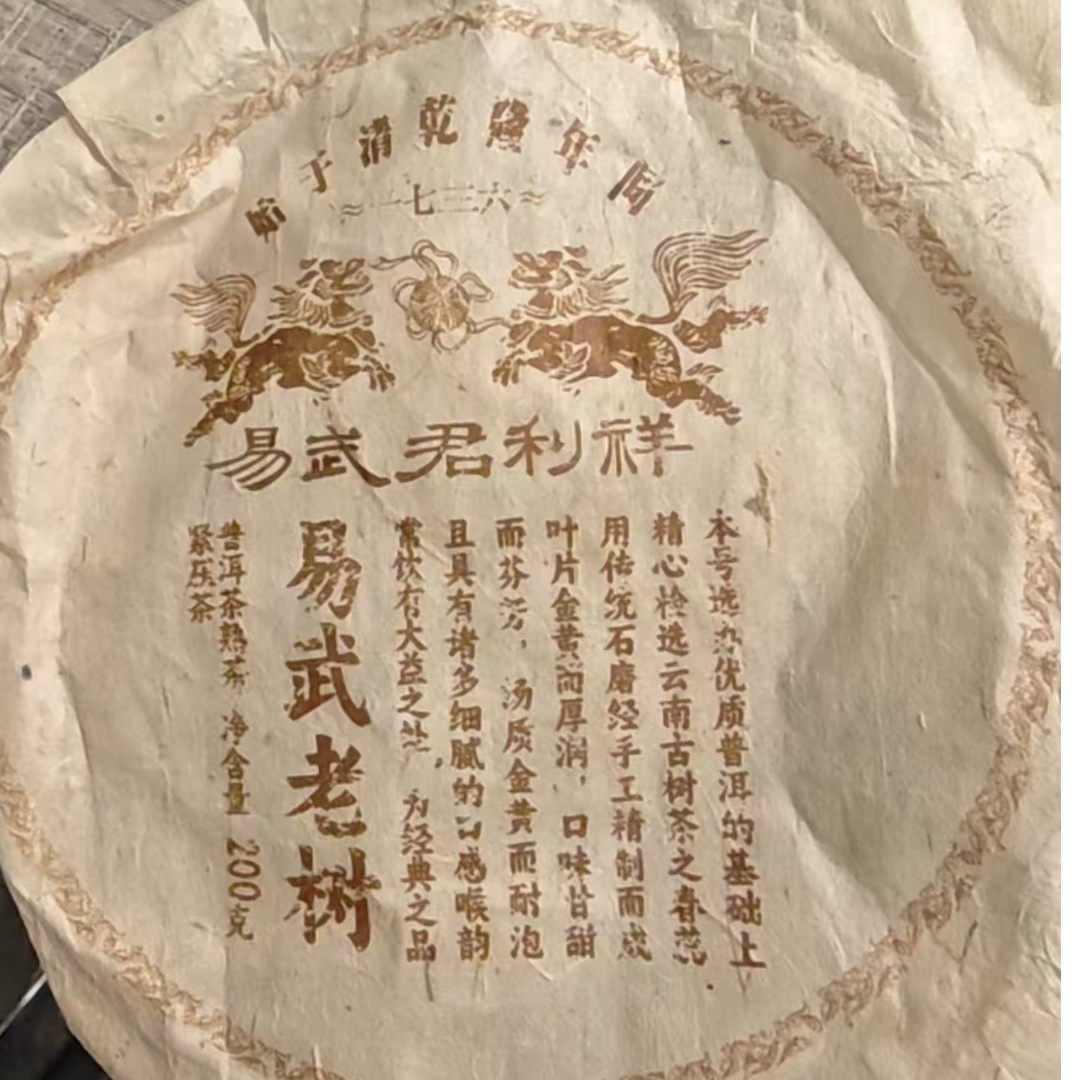 始于清乾隆年间
一七三六
易武君利祥
本号选办优质普洱的基础上
精心检选云南古树茶之春蕊
用传统石磨经手工精制而成
叶片金黄而厚润，口味甘甜
而芬芳，汤质金黄而耐泡
且具有诸多细腻的口感喉韵
常饮有大益之处，为经典之品
易武老树
普洱茶熟茶 净含量 200克
紧压茶